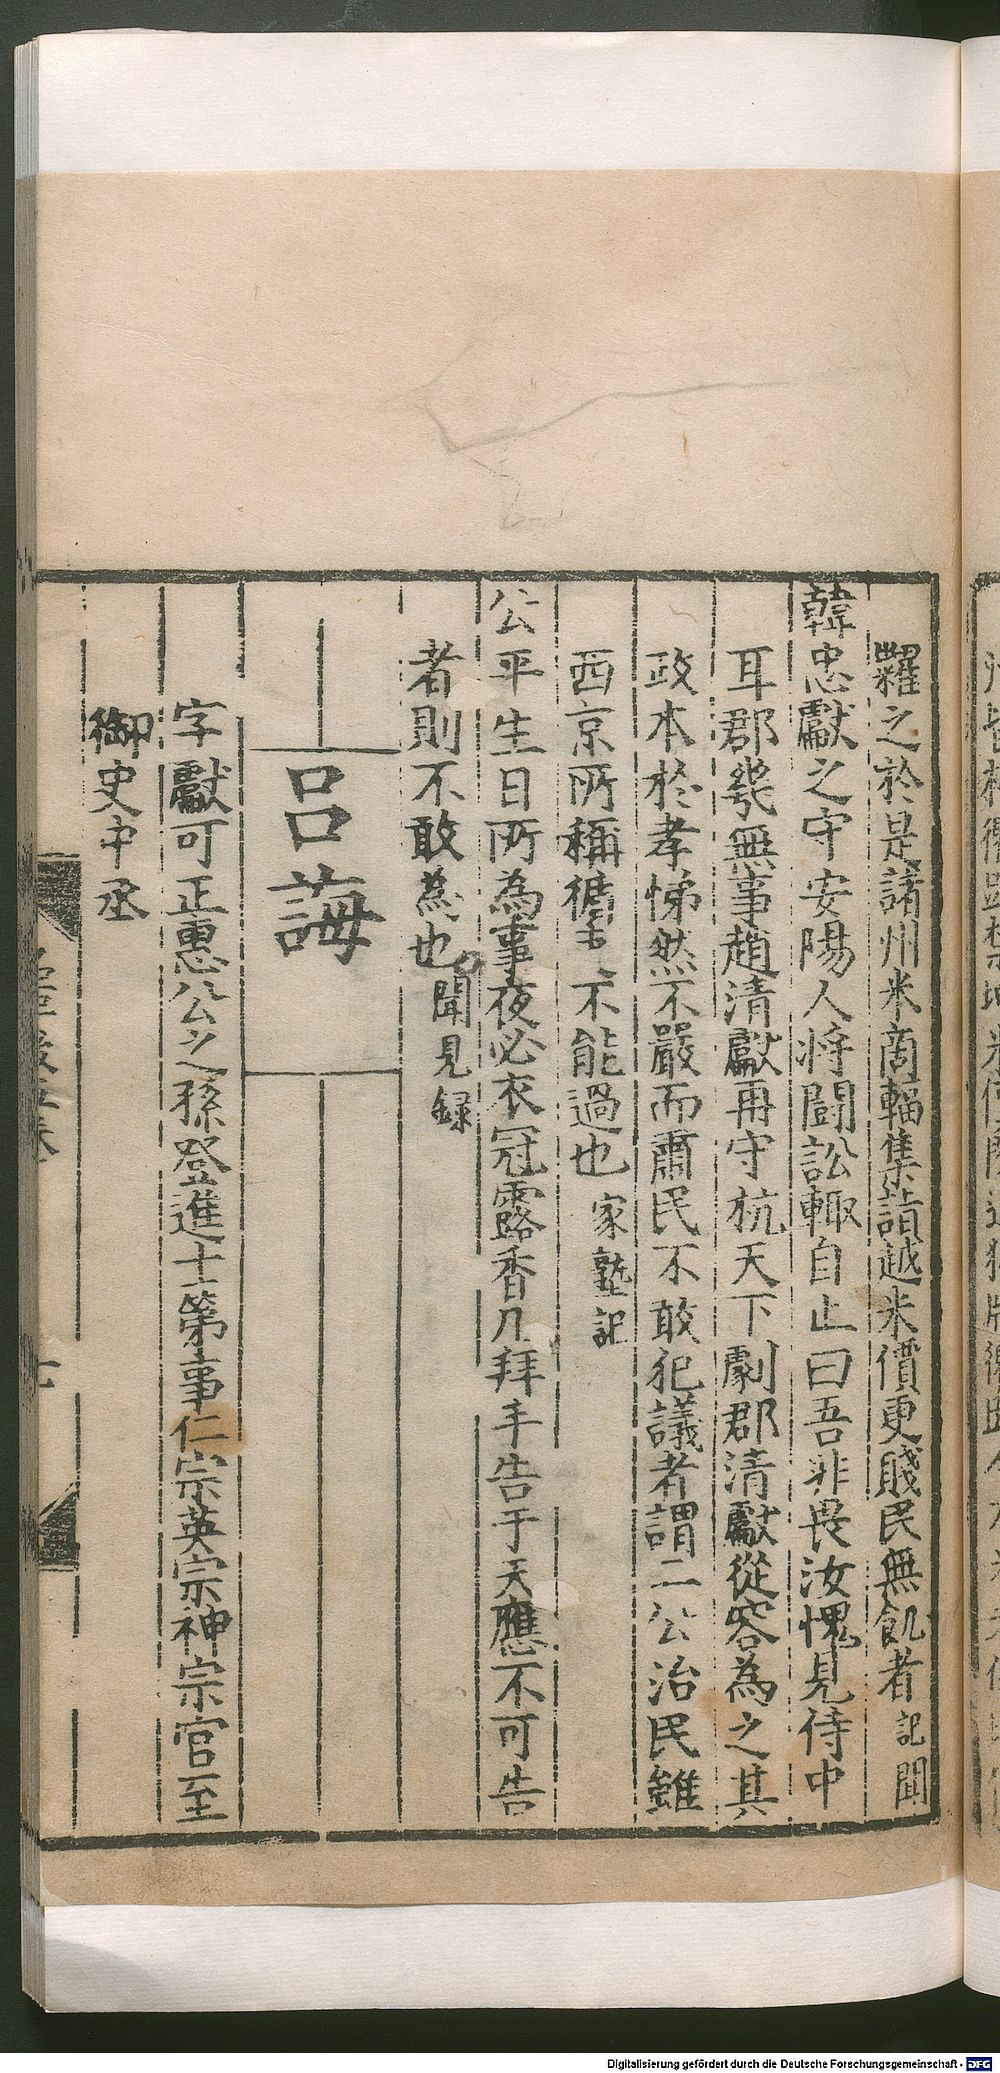 糶之於是諸州米商輻集詣越米價更賤民無飢者記聞
韓忠獻之守安陽人將鬪訟輙自止曰吾非畏汝愧見侍中
耳郡幾無事趙清獻再守杭天下劇郡清獻從容為之其
政本於孝悌然不嚴而肅民不敢犯議者謂二公治民雖
西京所稱循吏不能過也家塾記
公平生日所為事夜必衣冠露香几拜手告于天應不可告
者則不敢為也聞見録
呂誨
字獻可正惠公之孫登進士第事仁宗英宗神宗官至
御史中丞
七
Digitalisierung gefördert durch die Deutsche Forschungsgemeinschaft - DFG